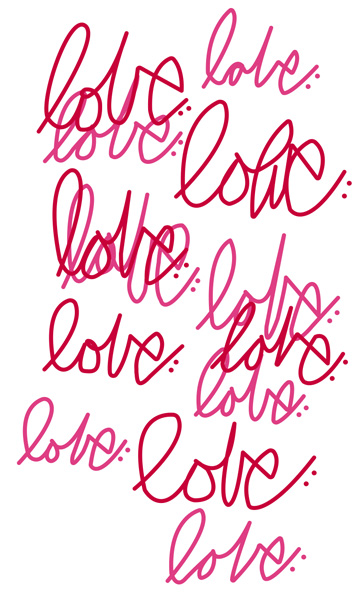 love:
love:
love:
love:
love:
love:
love:
love:
love:
love:
love:
love:
love: